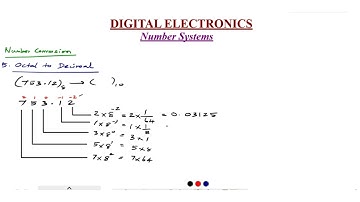 DIGITAL ELECTRONICS
Number Systems
Number Conversion
5. Octal to Decimal
(753.12)₈ → ( )₁₀
2 1 0 -1 -2
7 5 3 . 1 2
2 x 8⁻² = 2 x 1/64 = 0.03125
1 x 8⁻¹ = 1 x 1/8
3 x 8⁰ = 3 x 1
5 x 8¹ = 5 x 8
7 x 8² = 7 x 64